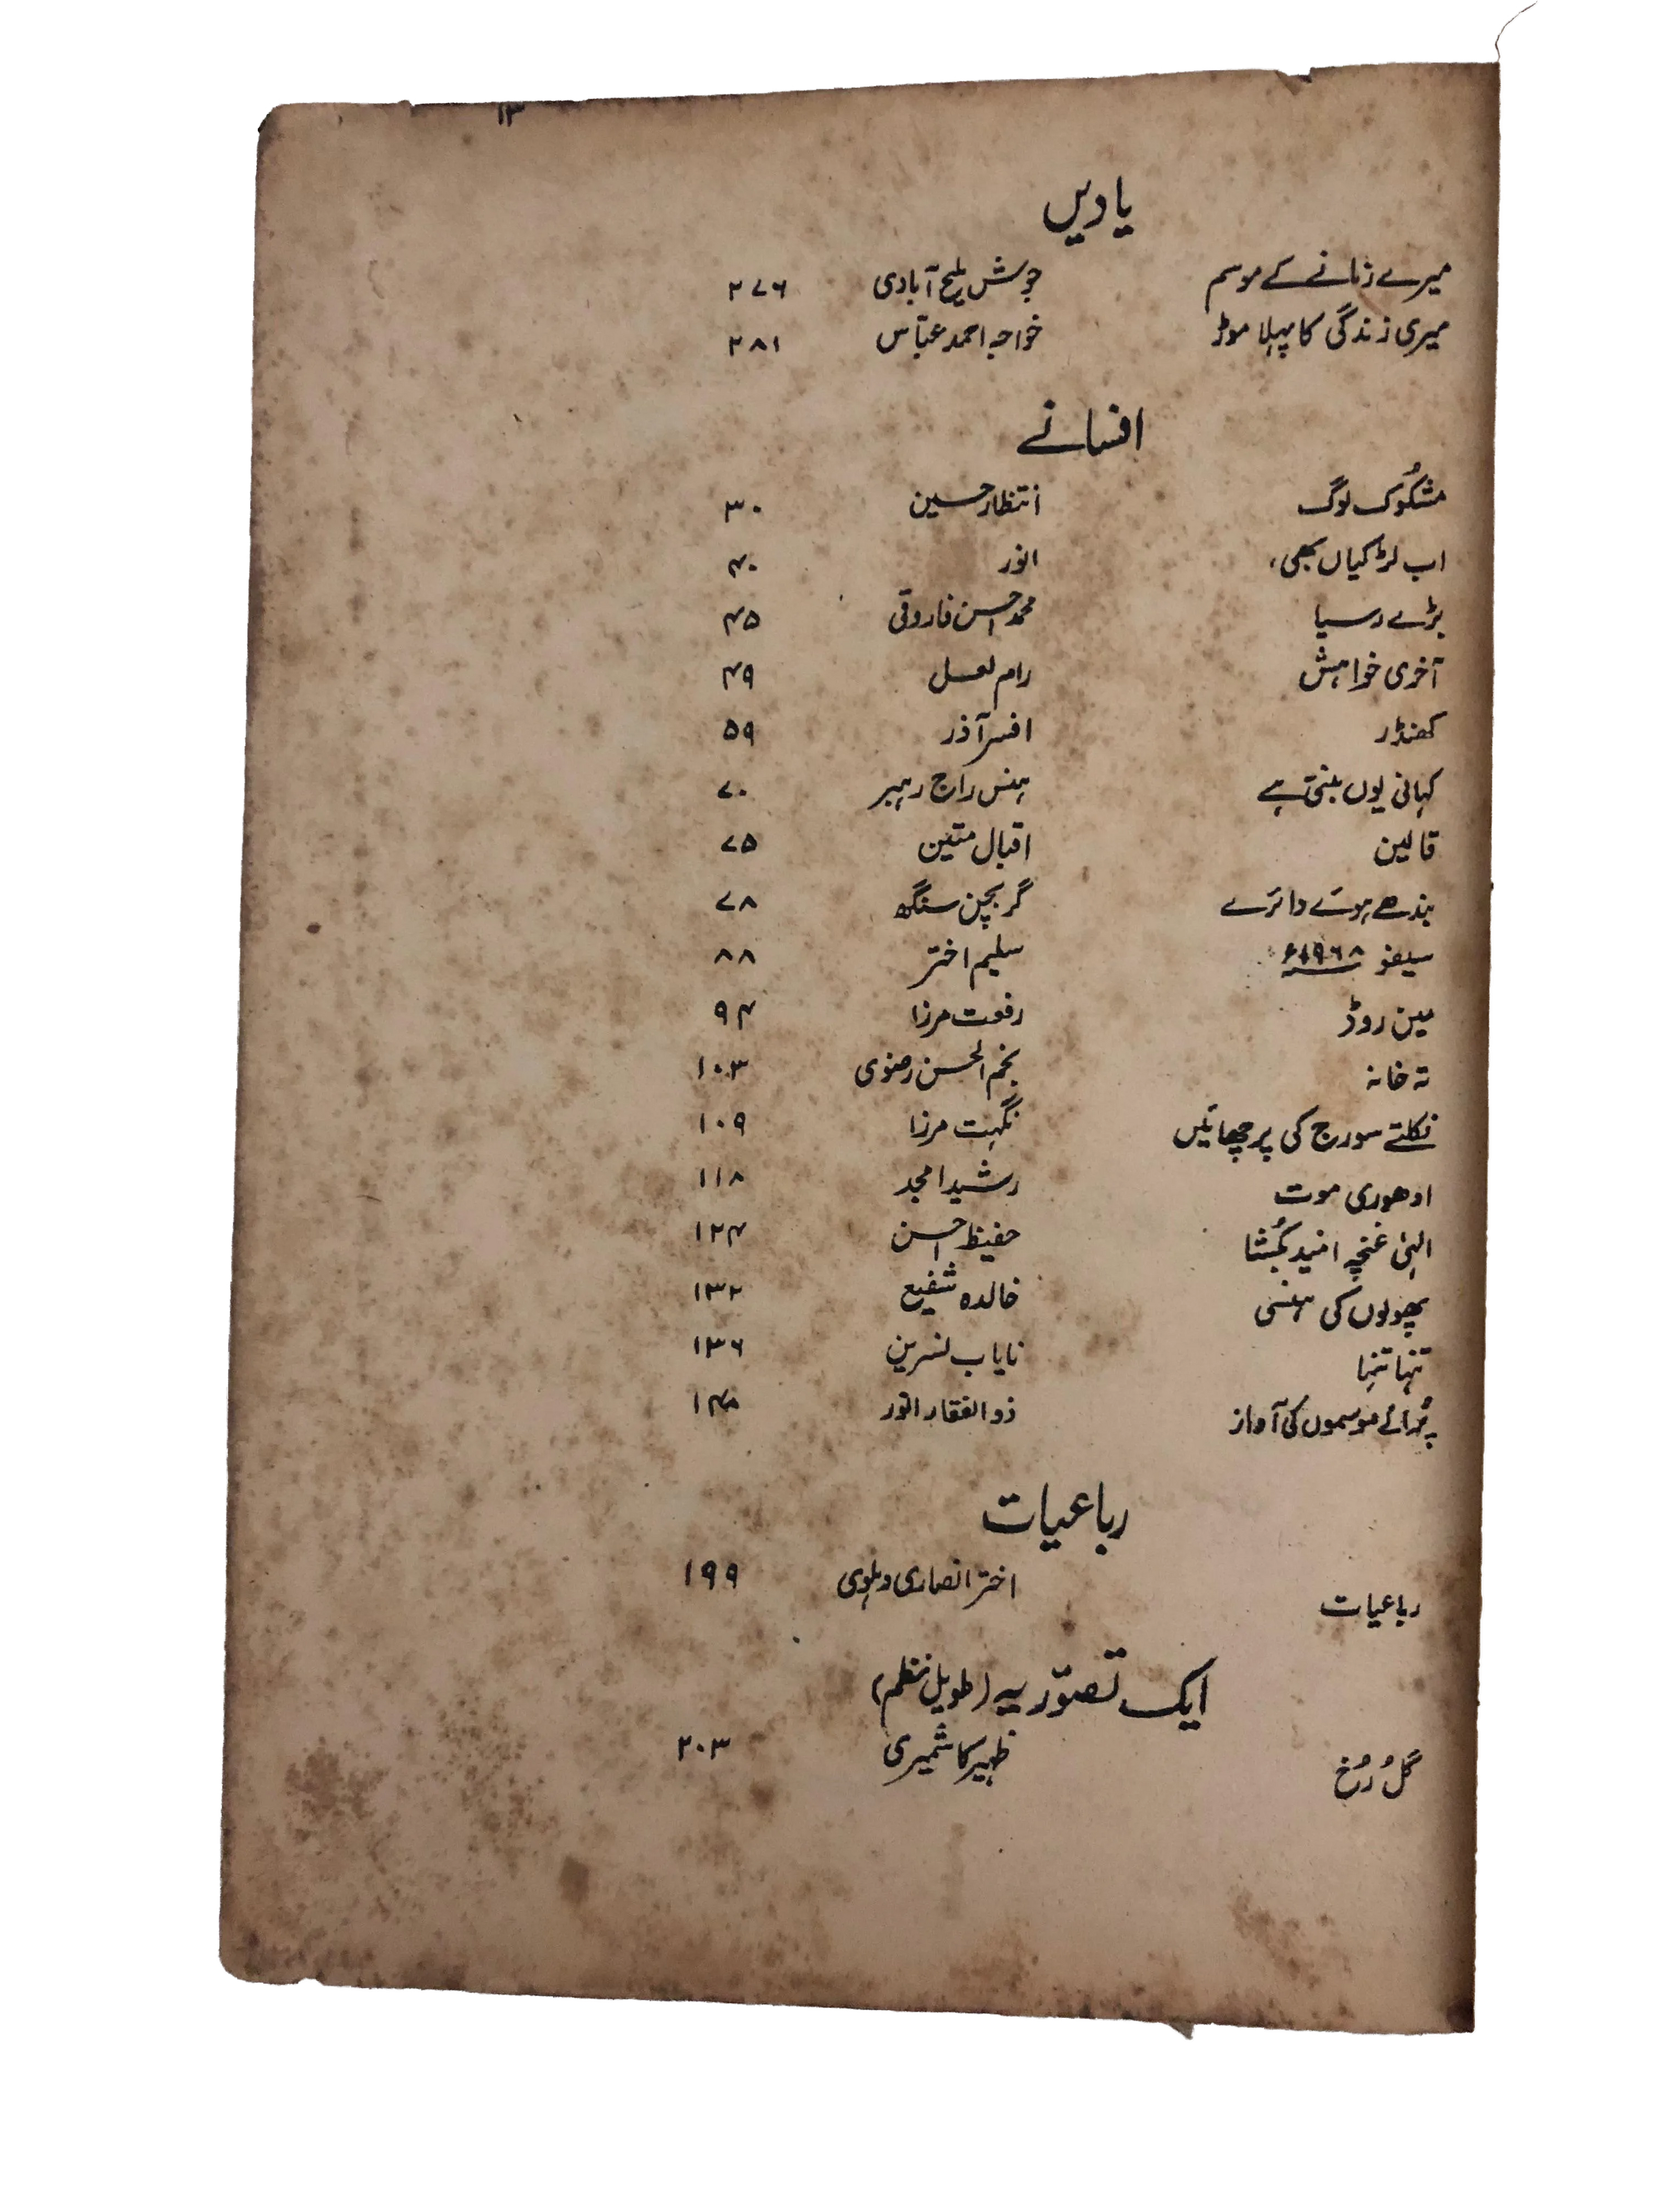 ۱۳
یادیں
میرے زمانے کے موسم جوش ملیح آبادی ۲۷۶
میری زندگی کا پہلا موڑ خواجہ احمد عبّاس ۲۸۱
افسانے
مشکُوک لوگ انتظار حسین ۳۰
اب لڑکیاں بھی، انور ۴۰
بڑے رسیا محمد احسن فاروقی ۴۵
آخری خواہش رام لعل ۴۹
کھنڈر افسر آذر ۵۹
کہانی یوں بنتی ہے ہنس راج رہبر ۷۰
قالین اقبال متین ۷۵
بندھے ہوئے دائرے گربچن سنگھ ۷۸
سیفو ۱۹۶۸ء سلیم اختر ۸۸
مین روڈ رفعت مرزا ۹۴
تہ خانہ نجم الحسن رضوی ۱۰۳
نکلتے سورج کی پرچھائیں نگہت مرزا ۱۰۹
ادھوری موت رشید امجد ۱۱۸
الہیٰ غنچہ امید بکُشا حفیظ احسن ۱۲۴
پھولوں کی ہنسی خالدہ شفیع ۱۳۲
تنہا تنہا نایاب نسرین ۱۳۶
پُرانے موسموں کی آواز ذوالفقار انور ۱۴۸
رباعیات
رباعیات اختر انصاری دہلوی ۱۹۹
ایک تصوّریہ (طویل نظم)
گُل رُخ ظہیر کاشمیری ۲۰۳